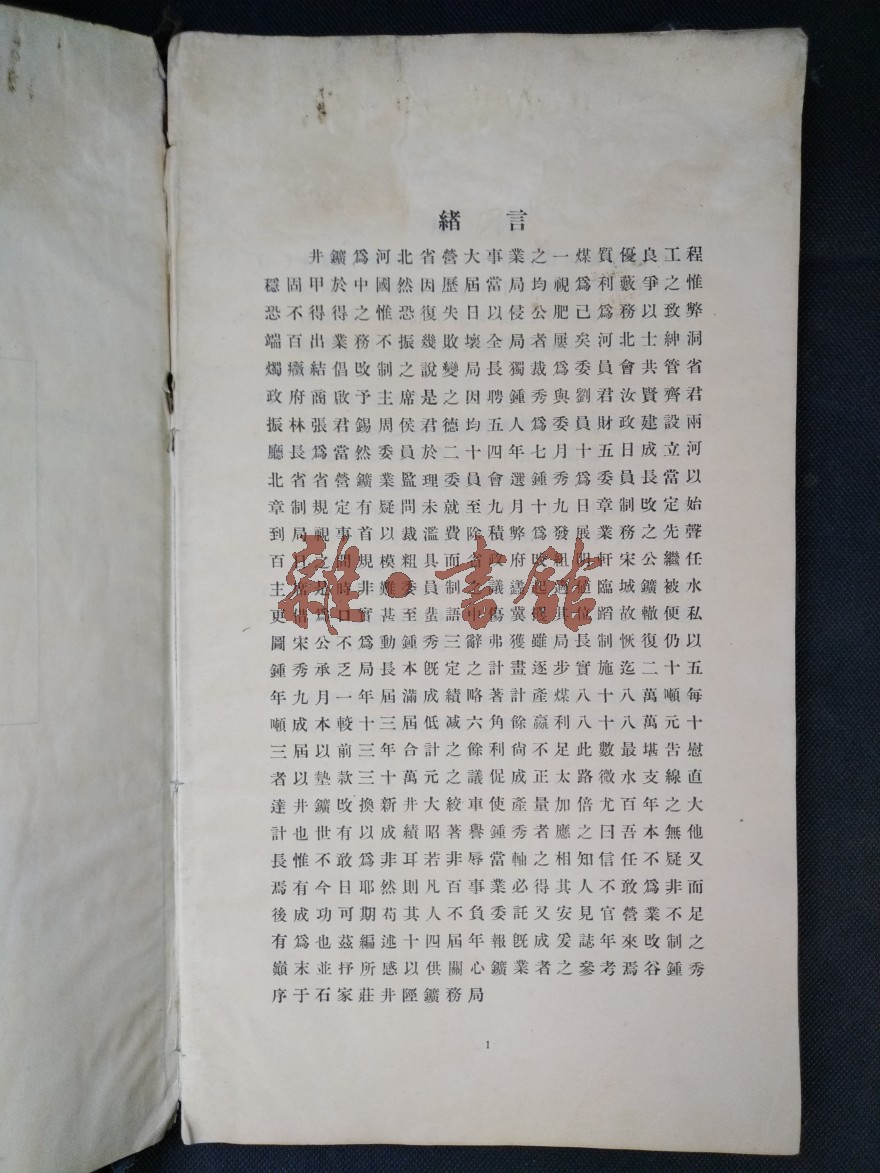 緒言
井鑛爲河北省營大事業之一煤質優良工程
穩固甲於中國然因歷屆當局均視爲利藪爭之惟
恐不得得之惟恐復失日以侵公肥己爲務以致弊
端百出業務不振幾敗壞全局者屢矣河北士紳洞
燭癥結倡改制之說變局長獨裁爲委員會共管省
政府商啟予主席是之因聘鍾秀與劉君汝賢齊君
振林張君錫周侯君德均五人爲委員財政建設兩
廳長爲當然委員於二十四年七月十五日成立河
北省省營鑛業監理委員會選鍾秀爲委員長當以
章制規定有疑問未就至九月十九日章制改定始
到局視事首以裁濫費除積弊爲發展業務之先聲
百日之間規模粗具而省政府改組明軒宋公繼任
主席是時非難委員制之議蠭起適值臨城鑛被水
更借爲口實甚至蜚語中傷冀其位蹈故轍便私
圖宋公不爲動鍾秀三辭弗獲雖局長制恢復仍以
鍾秀承乏局長本旣定之計畫逐步實施迄二十五
年九月一年屆滿成績略著計產煤八十八萬噸每
噸成本較十三屆低减六角餘贏利八十八萬元十
三屆以前三年合計之餘利尙不足此數最堪告慰
者以墊款三十萬元之議促成正太路微水支線直
達井鑛改換新井大絞車使產量加倍尤百年之大
計也世有以成績昭著譽鍾秀者應之曰吾本無他
長惟不敢爲非耳若非辱當軸之相知信任不疑又
焉有今日耶然則凡百事業必得其人不敢爲非而
後成功可期苟其人不負委託又安見官營業不足
有爲也茲編述十四屆年報旣成爰誌年來改制之
巓末並抒所感以供關心鑛業者之參考焉谷鍾秀
序于石家莊井陘鑛務局
1
雜·書館